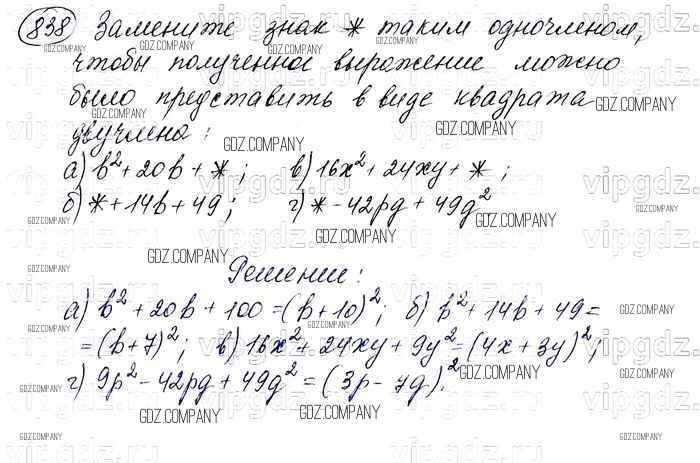 838 Замените знак * таким одночленом,
чтобы полученное выражение можно
было представить в виде квадрата
двучлена:
а) b² + 20b + *; в) 16x² + 24xy + *;
б) * + 14b + 49; г) * - 42pq + 49q²
Решение:
а) b² + 20b + 100 = (b + 10)²; б) b² + 14b + 49 =
= (b + 7)²; в) 16x² + 24xy + 9y² = (4x + 3y)²;
г) 9p² - 42pq + 49q² = (3p - 7q)².
GDZ.COMPANY
vipgdz.ru